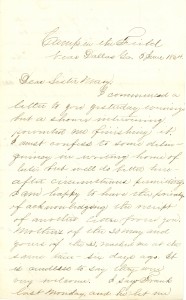 Camp in the Field
Near Dallas Ga 3 June 1864
Dear Sister Mary
I commenced a
letter to you yesterday evening
but a shower intervening
prevented me finishing it.
I must confess to some delin-
quency in writing home of
late but will do better here-
after circumstances permitting
I am happy to have the pleasure
of acknowledging the receipt
of another letter from you
Mothers of the 17 May and
yours of the reached me at the
same time - six days ago. It
is needless to say they are
very welcome. I saw Frank
last Monday and he let me